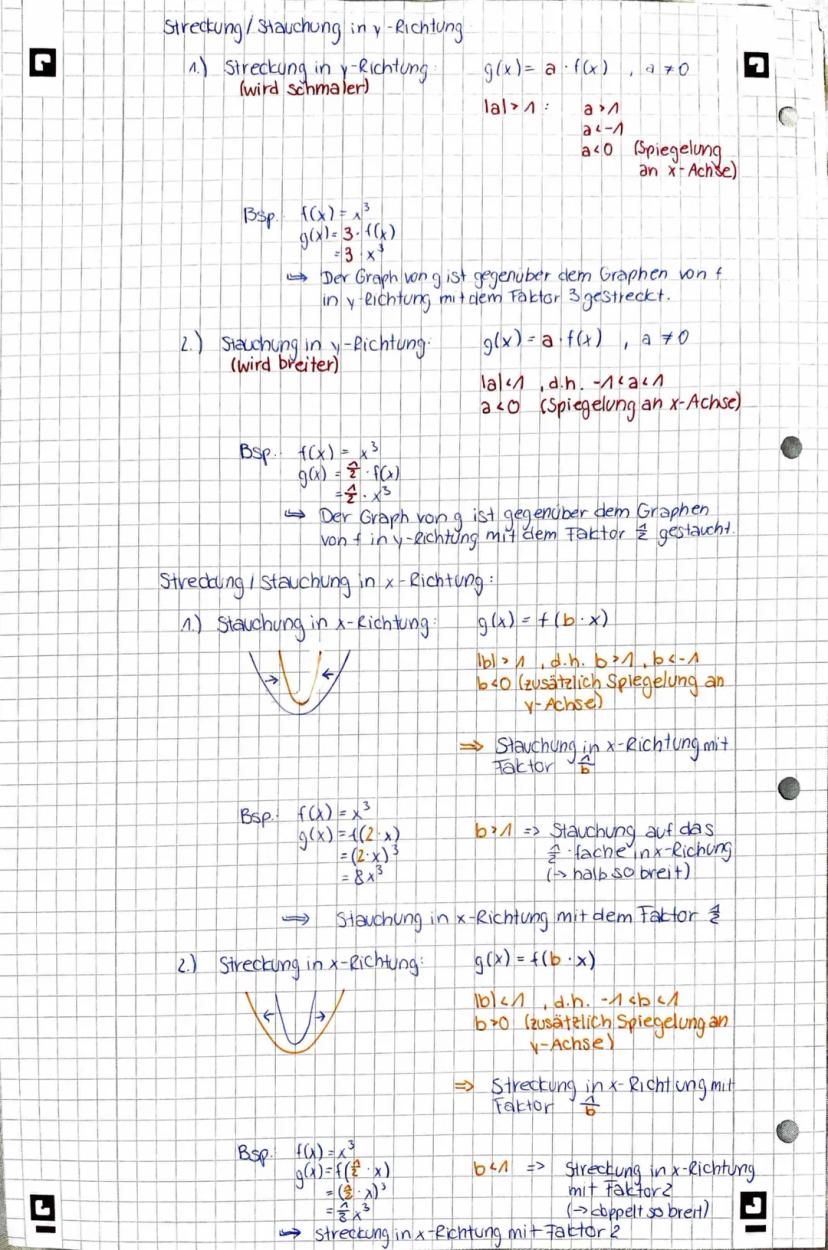 Streckung / Stauchung in y-Richtung
1.) Streckung in y-Richtung: g(x) = a · f(x) , a ≠ 0
(wird schmaler)
|a| > 1 : a > 1
a < -1
a < 0 (Spiegelung
an x-Achse)
Bsp.: f(x) = x³
g(x) = 3 · f(x)
= 3 · x³
↪ Der Graph von g ist gegenüber dem Graphen von f
in y-Richtung mit dem Faktor 3 gestreckt.
2.) Stauchung in y-Richtung: g(x) = a · f(x) , a ≠ 0
(wird breiter)
|a| < 1 , d.h. -1 < a < 1
a < 0 (Spiegelung an x-Achse)
Bsp.: f(x) = x³
g(x) = 1/2 · f(x)
= 1/2 · x³
↪ Der Graph von g ist gegenüber dem Graphen
von f in y-Richtung mit dem Faktor 1/2 gestaucht.
Streckung / Stauchung in x-Richtung:
1.) Stauchung in x-Richtung: g(x) = f(b · x)
|b| > 1 , d.h. b > 1 , b < -1
b < 0 (zusätzlich Spiegelung an
y-Achse)
⇒ Stauchung in x-Richtung mit
Faktor 1/b
Bsp.: f(x) = x³
g(x) = f(2 · x) b > 1 => Stauchung auf das
= (2 · x)³ 1/2-fache in x-Richung
= 8x³ (→ halb so breit)
⇒ Stauchung in x-Richtung mit dem Faktor 1/2
2.) Streckung in x-Richtung: g(x) = f(b · x)
|b| < 1 , d.h. -1 < b < 1
b > 0 (zusätzlich Spiegelung an
y-Achse)
⇒ Streckung in x-Richtung mit
Faktor 1/b
Bsp.: f(x) = x³
g(x) = f(1/2 · x) b < 1 => Streckung in x-Richtung
= (1/2 · x)³ mit Faktor 2
= 1/8 x³ (→ doppelt so breit)
↪ Streckung in x-Richtung mit Faktor 2